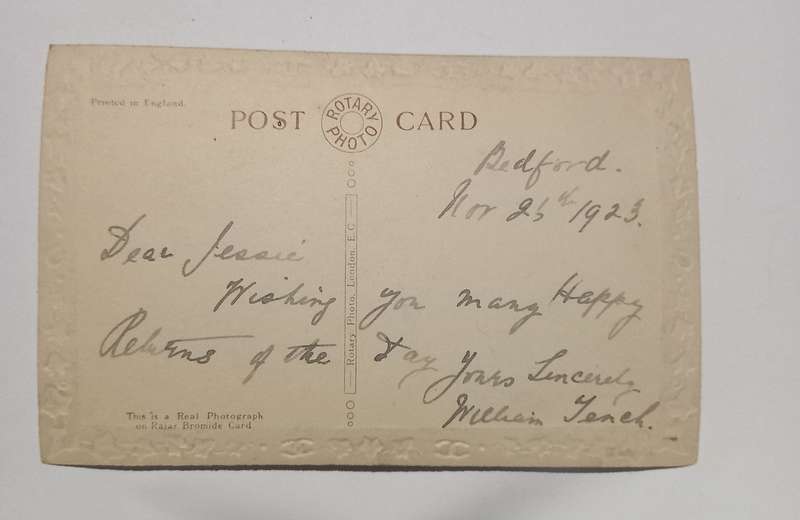 Printed in England.
POST CARD
ROTARY PHOTO
Bedford.
Nov 25th 1923.
Dear Jessie
Wishing you many Happy
Returns of the Day
Yours Sincerely
William Tench.
Rotary Photo, London, E.C.
This is a Real Photograph
on Rajar Bromide Card